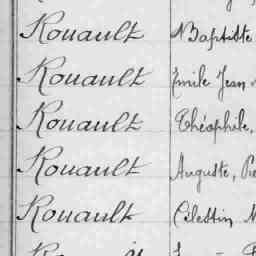 Rouault Baptiste
Rouault Émile Jean
Rouault Théophile,
Rouault Auguste, Pie
Rouault Célestin